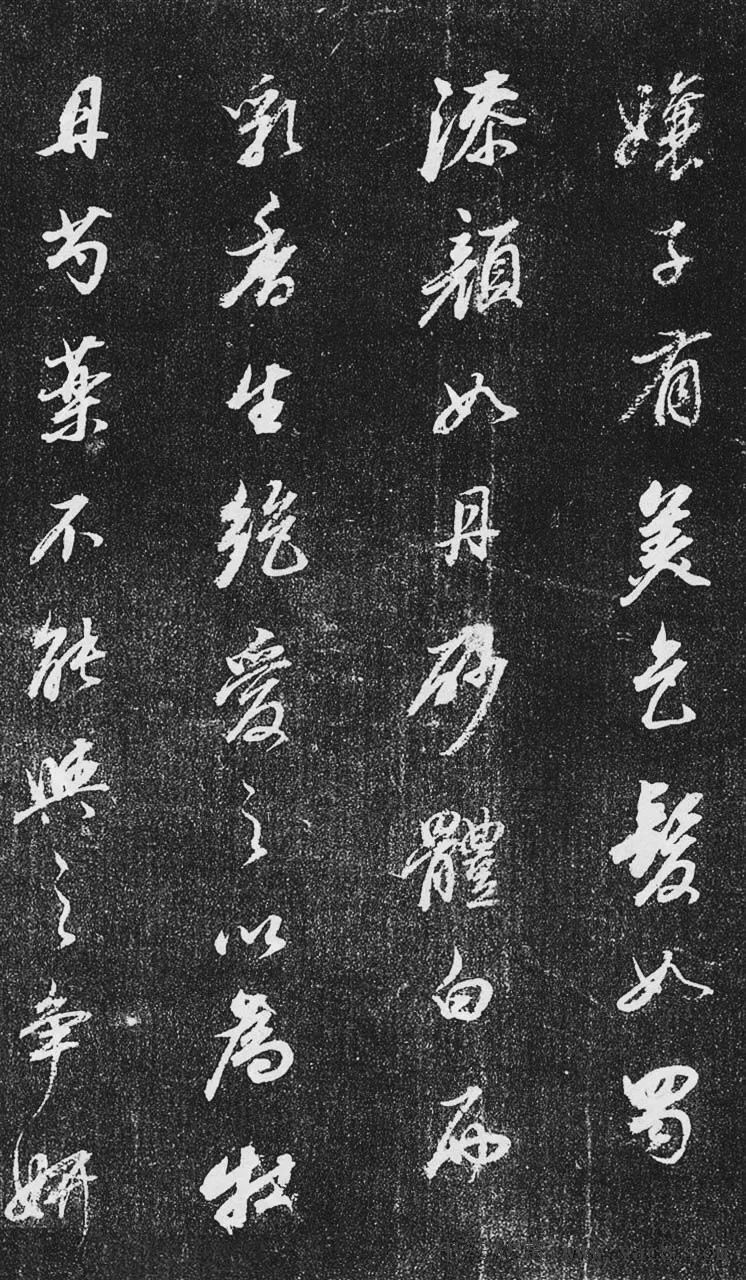 孃子有美色髮如蜀
漆顏如丹砂體白而
乳香生絕愛之以為牡
丹芍藥不能與之爭妍